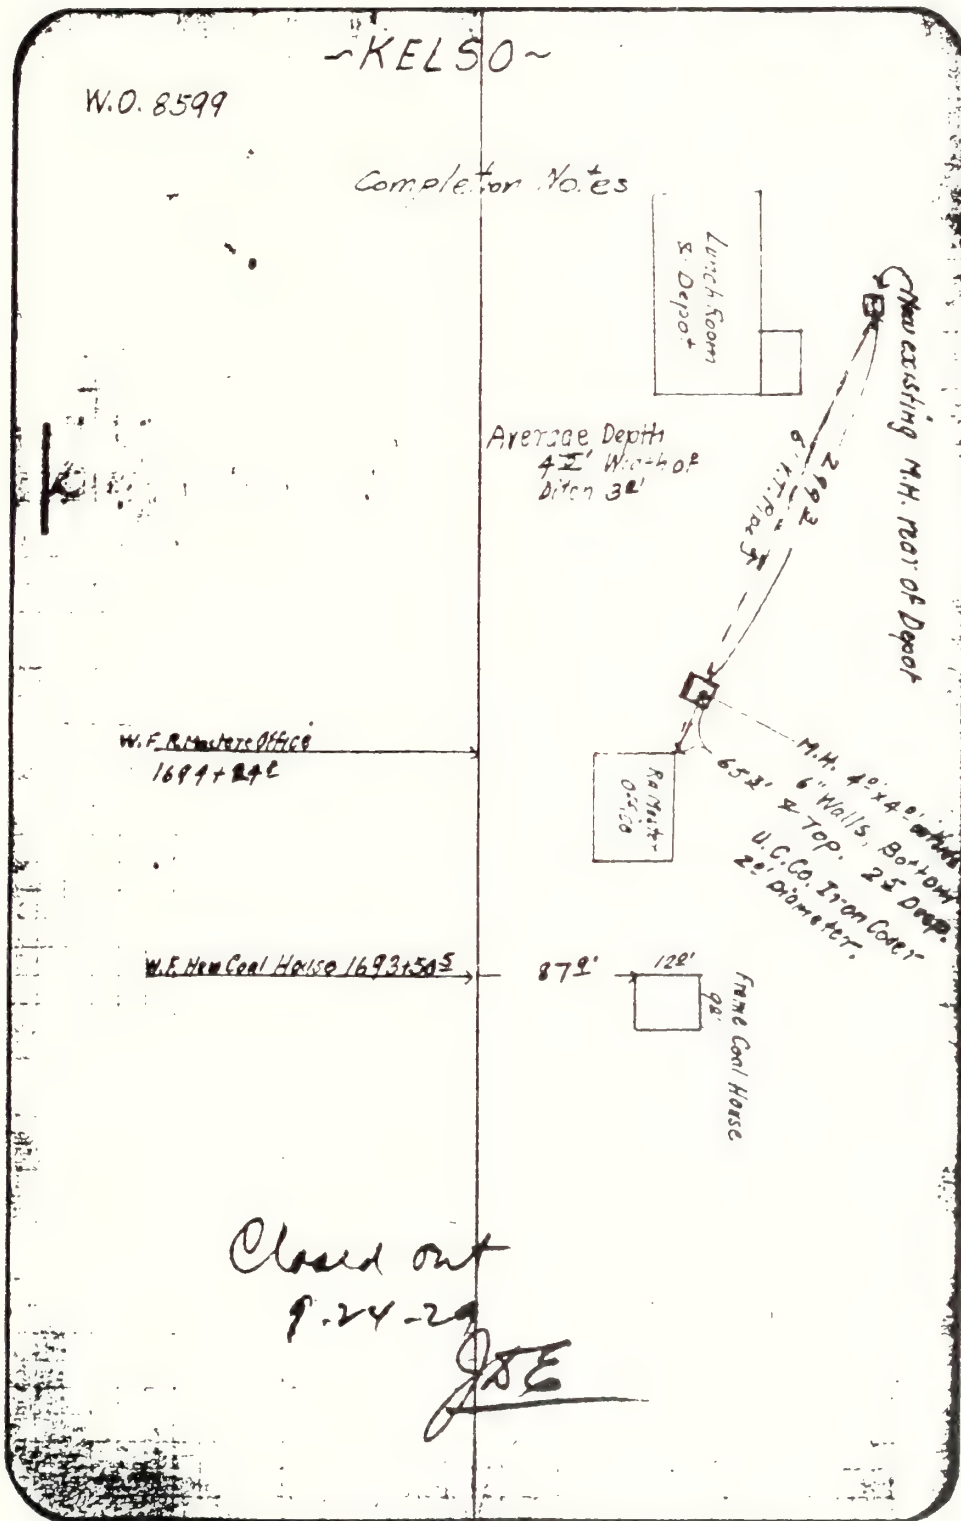 ~KELSO~
W.O. 8599
Completion Notes
Lunch Room
& Depot
New existing M.H. rear of Depot
Average Depth
Width of
Ditch 3⁰'
6" V.T. Pipe
W.F. R. Masters Office
1694+
Rd Master
Office
M.H. 4⁰'x4⁰'
6" Walls, Bottom
& Top. Deep.
U.C.Co. Iron Cover
2⁰' Diameter.
W.F. New Coal House 1693+50⁵
87⁰'
12⁰'
9⁰'
Frame Coal House
Closed out
9-24-29